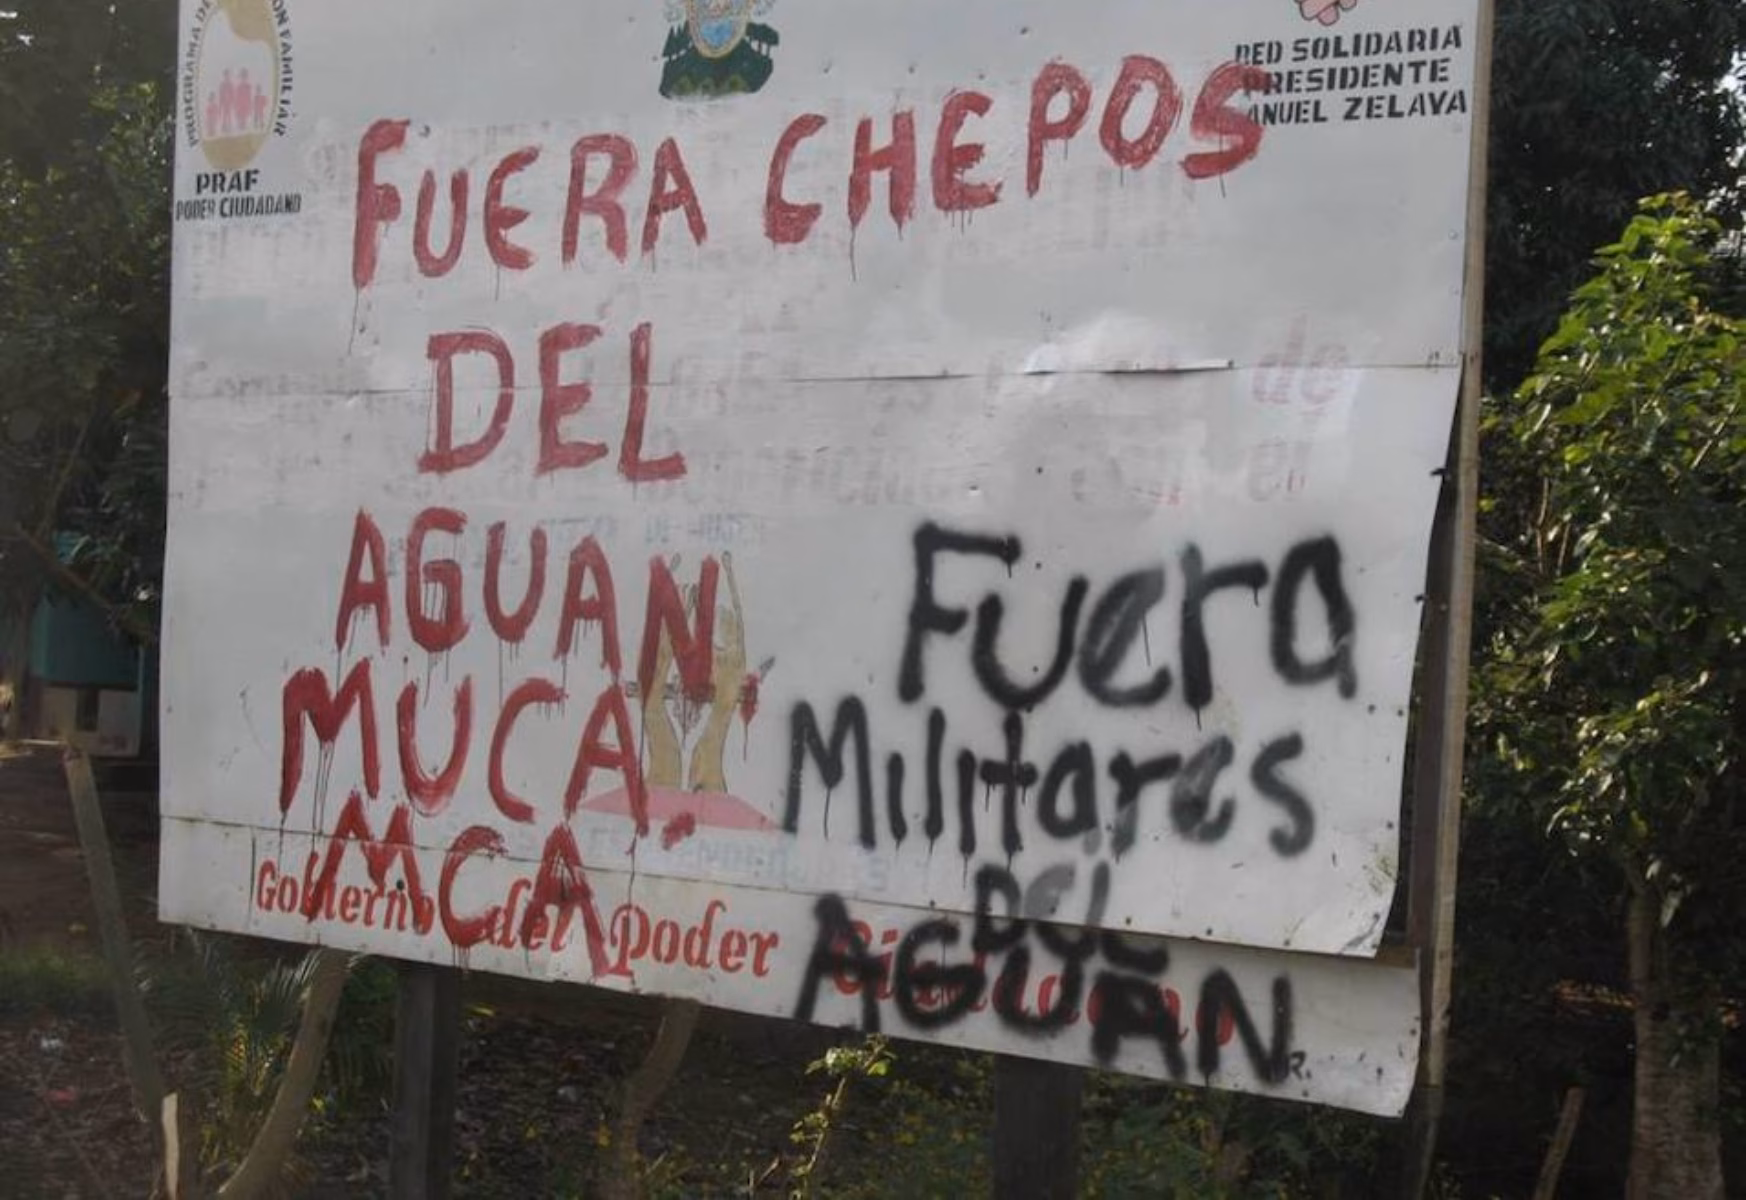 PROGRAMA DE
ON FAMILIAR
PRAF
PODER CIUDADANO
RED SOLIDARIA
PRESIDENTE
ANUEL ZELAYA
FUERA CHEPOS
DEL
AGUAN
MUCA.
MCA
Fuera
Militares
DEL
AGUAN
de
Gobierno del Poder Ciudadano
R.